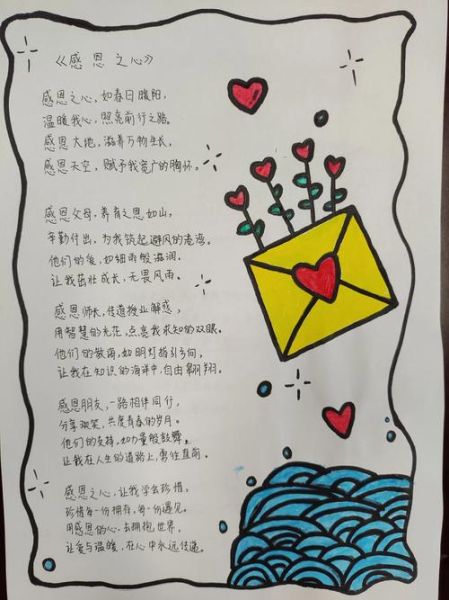 《感恩之心》
感恩之心，如春日暖阳，
温暖我心，照亮前行之路。
感恩大地，滋养万物生长，
感恩天空，赋予我宽广的胸怀。
感恩父母，养育之恩如山，
辛勤付出，为我筑起避风的港湾。
他们的爱，如细雨般滋润，
让我茁壮成长，无畏风雨。
感恩师长，传道授业解惑，
用智慧的光芒，点亮我求知的双眼。
他们的教诲，如明灯指引方向，
让我在知识的海洋中，自由翱翔。
感恩朋友，一路相伴同行，
分享欢笑，共度青春的岁月。
他们的支持，如力量般鼓舞，
让我在人生的道路上，勇往直前。
感恩之心，让我学会珍惜，
珍惜每一份拥有，每一份遇见。
用感恩的心，去拥抱世界，
让爱与温暖，在心中永远传递。